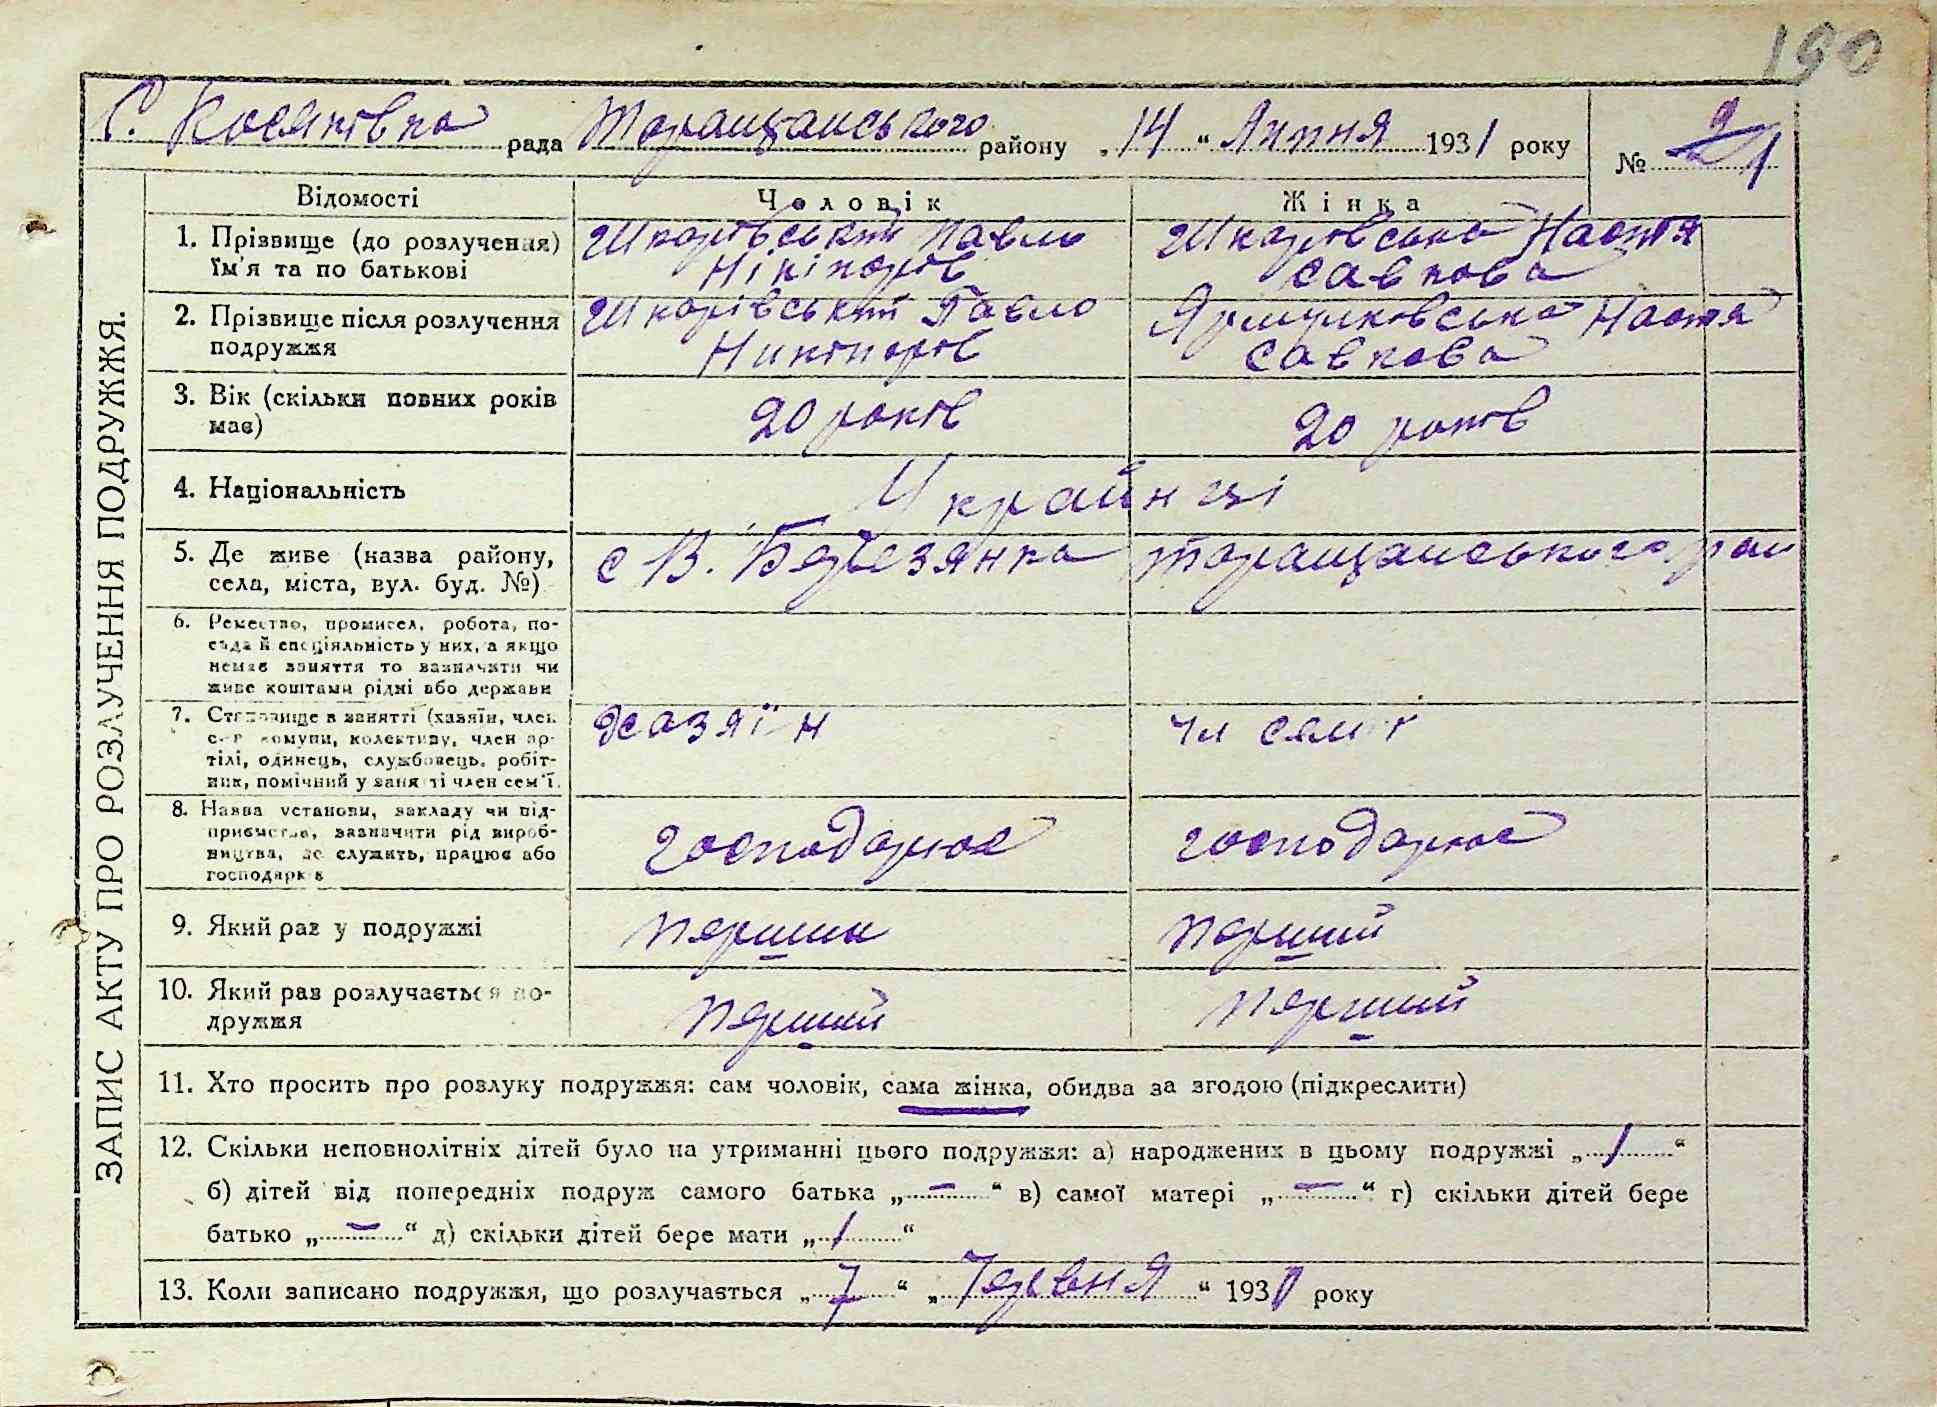 190
С. Косяківка рада Таращанського району „14“ Липня 1931 року № 1
ЗАПИС АКТУ ПРО РОЗЛУЧЕННЯ ПОДРУЖЖЯ.
Відомості Чоловік Жінка
1. Прізвище (до розлучення) Шкарівський Павло Шкаровська Настя
Їм'я та по батькові Нікіпорів Савкова
2. Прізвище після розлучення Шкарівський Павло Настя
подружжя Никипорів Савкова
3. Вік (скільки повних років 20 років 20 років
має)
4. Національність Українці
5. Де живе (назва району, с В. Березянка Таращанського рай
села, міста, вул. буд. №)
6. Ремество, промисел, робота, по-
сада й спеціяльність у них, а якщо
немає заняття то зазначити чи
живе коштами рідні або держави
7. Становище в занятті (хазяїн, член хазяїн чл семї
с-г комуни, колективу, член ар-
тілі, одинець, службовець, робіт-
ник, помічний у занятті член сем'ї.
8. Назва установи, закладу чи під-
приємства, зазначити рід вироб- господарює господарює
ництва, де служить, працює або
господарює
9. Який раз у подружжі перший перший
10. Який раз розлучається по- перший перший
дружжя
11. Хто просить про розлуку подружжя: сам чоловік, сама жінка, обидва за згодою (підкреслити)
12. Скільки неповнолітніх дітей було на утриманні цього подружжя: а) народжених в цьому подружжі „1“
б) дітей від попередніх подруж самого батька „—“ в) самої матері „—“ г) скільки дітей бере
батько „—“ д) скільки дітей бере мати „1“
13. Коли записано подружжя, що розлучається „7“ „Червня“ 1930 року